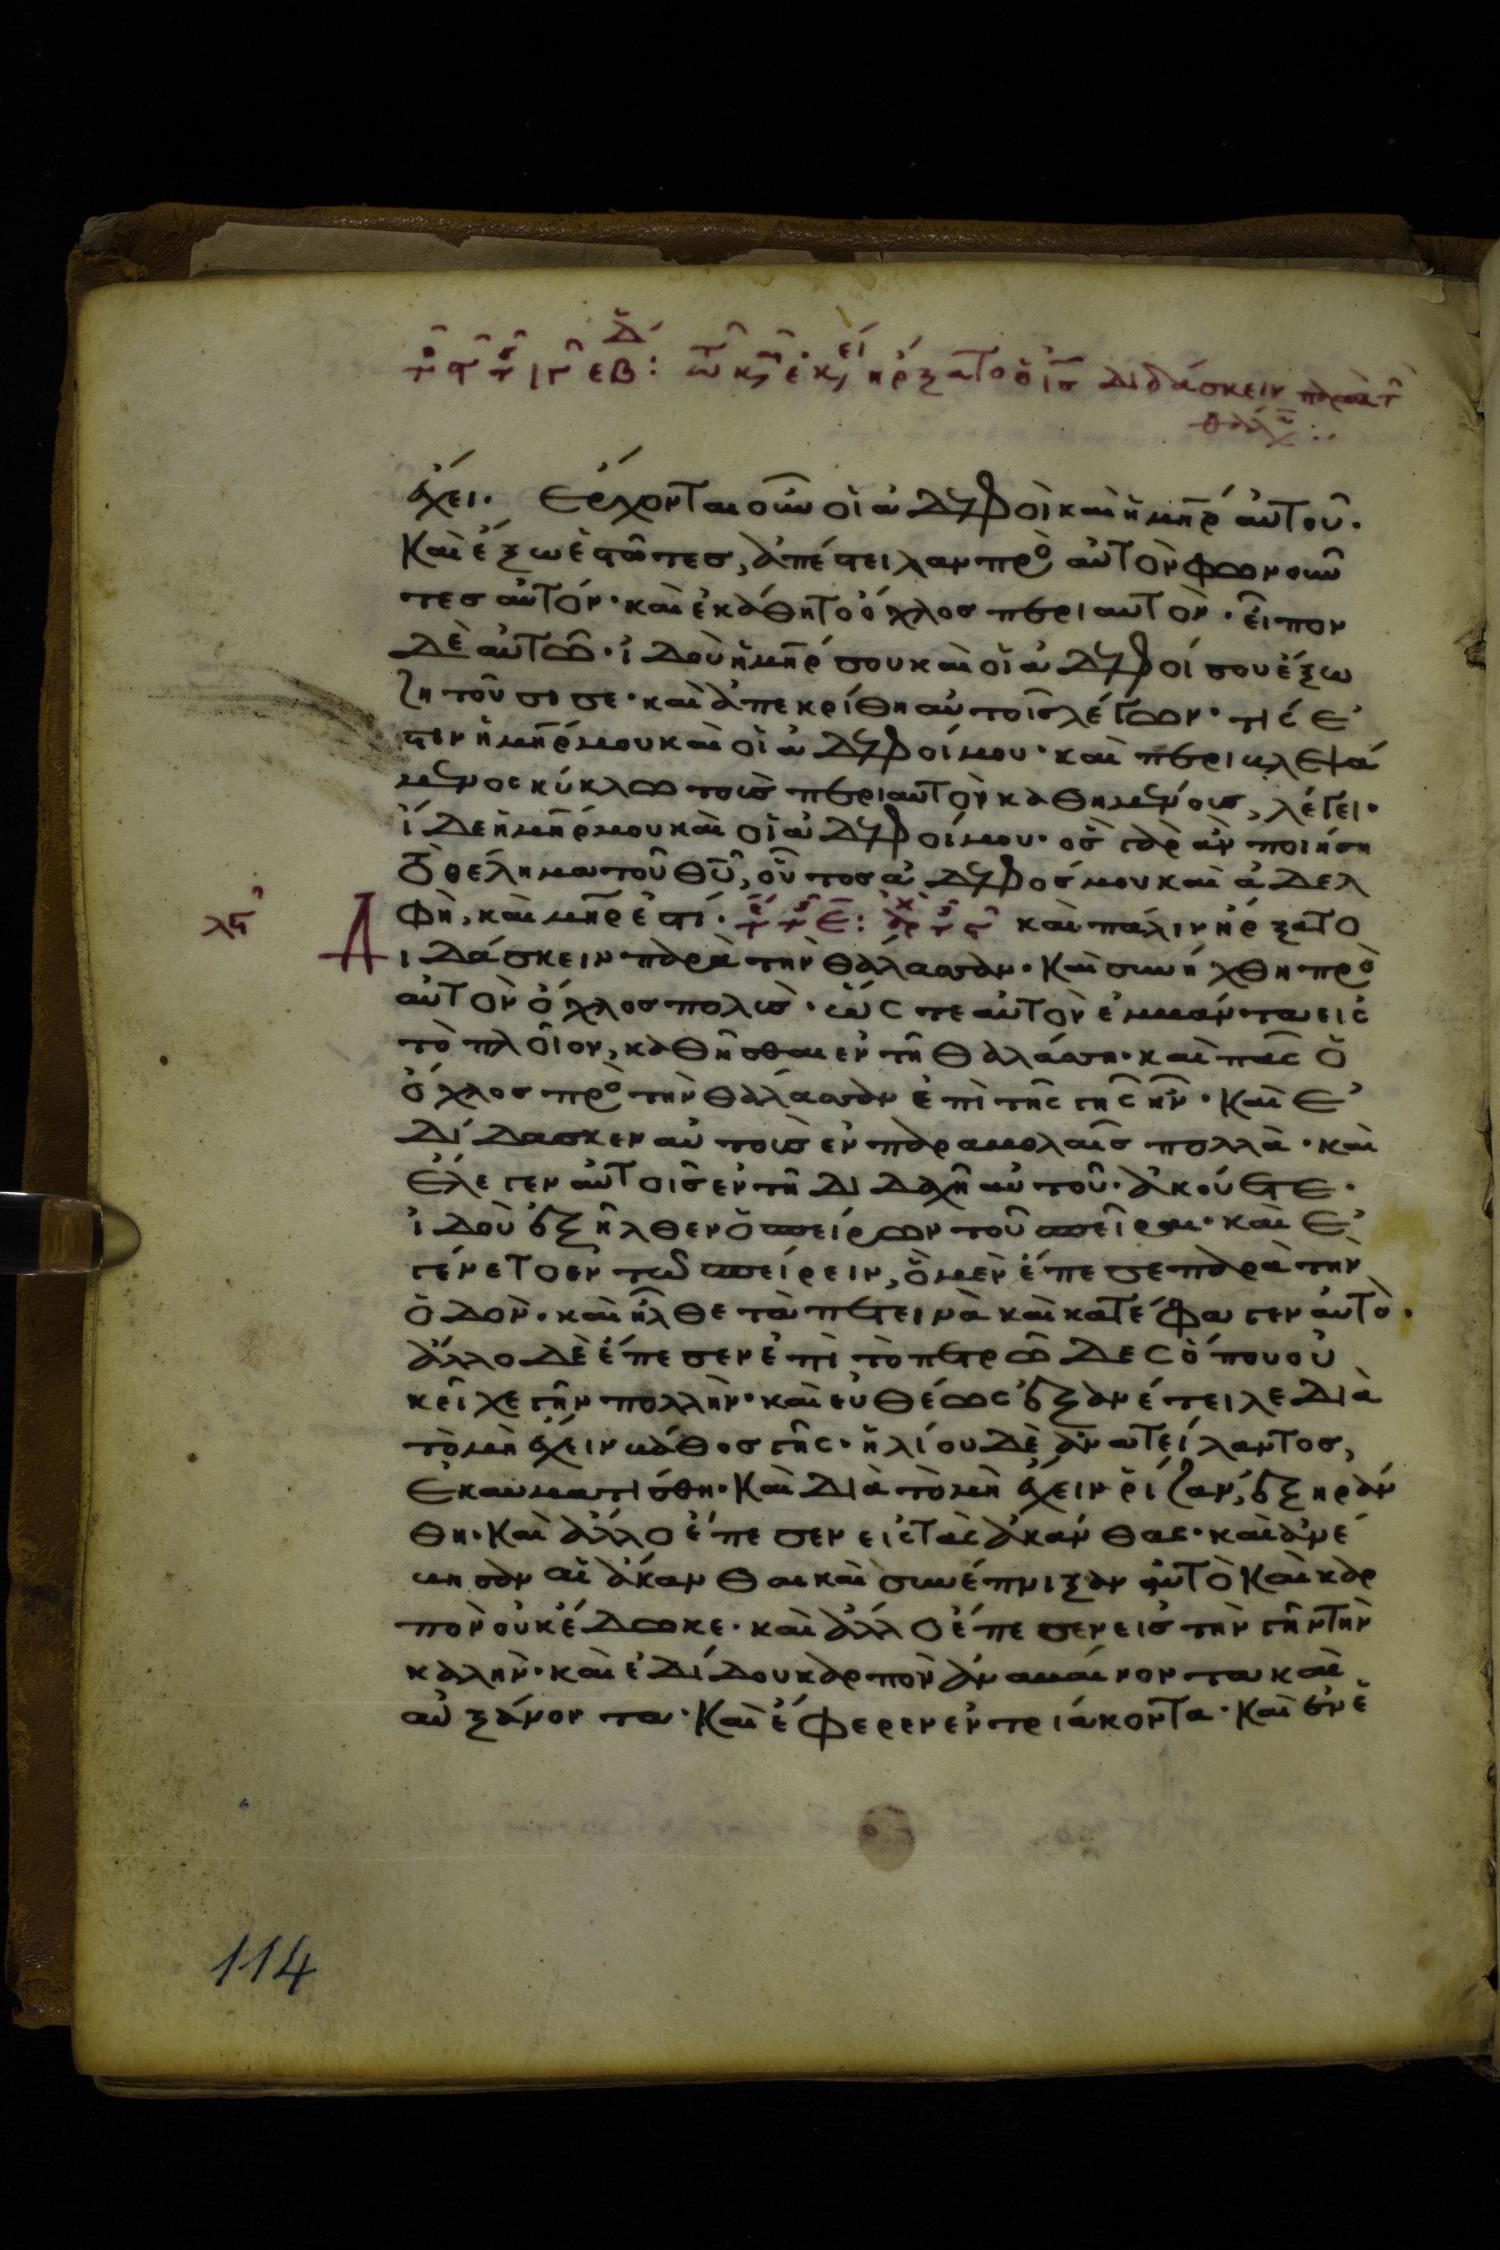 ἤρξατο ὁ ις διδάσκειν παρὰ τ
θάλ
έχει. Ἔρχονται οὖν οἱ ἀδελφοὶ καὶ ἡ μηρ αὐτοῦ.
Καὶ ἔξω ἑστῶτες, ἀπέστειλαν πρὸ αὐτὸν φωνοῦν
τες αὐτόν· καὶ ἐκάθητο ὄχλος περὶ αὐτὸν· εἶπον
δὲ αὐτῶ· ἰδοὺ ἡ μηρ σου καὶ οἱ ἀδελφοί σου ἔξω
ζητοῦσί σε· καὶ ἀπεκρίθη αὐτοῖς λέγων· τίς ἐ
στιν ἡ μηρ μου καὶ οἱ ἀδελφοί μου· καὶ περιβλεψά
μενος κύκλω τοὺς περὶ αὐτὸν καθημένους, λέγει·
ἴδε ἡ μηρ μου καὶ οἱ ἀδελφοί μου· ὃς γὰρ ἂν ποιήση
τὸ θέλημα τοῦ θυ, οὗτος ἀδελφός μου καὶ ἀδελ
φὴ, καὶ μηρ ἐστί. καὶ πάλιν ἤρξατο
λϛ Διδάσκειν παρὰ τὴν θάλασσαν. Καὶ συνήχθη πρὸ
αὐτὸν ὄχλος πολὺς· ὥστε αὐτὸν ἐμβάντα εἰς
τὸ πλοῖον, καθῆσθαι ἐν τῆ θαλάσση· καὶ πᾶς ὁ
ὄχλος πρὸ τὴν θάλασσαν ἐπὶ τῆς γῆς ἦν· Καὶ ἐ
δίδασκεν αὐτοὺς ἐν παραβολαῖς πολλὰ· καὶ
ἔλεγεν αὐτοῖς ἐν τῆ διδαχῆ αὐτοῦ· ἀκούετε·
ἰδοὺ ἐξῆλθεν ὁ σπείρων τοῦ σπεῖραι· καὶ ἐ
γένετο ἐν τῶ σπείρειν, ὃ μὲν ἔπεσε παρὰ τὴν
ὁδὸν· καὶ ἦλθε τὰ πετεινὰ καὶ κατέφαγεν αὐτὸ.
ἄλλο δὲ ἔπεσεν ἐπὶ τὸ πετρῶδες ὅπου οὐ
κ εἶχε γῆν πολλὴν· καὶ εὐθέως ἐξανέτειλε διὰ
τὸ μὴ ἔχειν βάθος γῆς· ἡλίου δὲ ἀνατείλαντος,
ἐκαυματίσθη· Καὶ διὰ τὸ μὴ ἔχειν ῥίζαν, ἐξηράν
θη· Καὶ ἄλλο ἔπεσεν εἰς τὰς ἀκάνθας· καὶ ἀνέ
βησαν αἱ ἄκανθαι καὶ συνέπνιξαν αὐτὸ Καὶ καρ
πὸν οὐκ ἔδωκε· καὶ ἄλλο ἔπεσεν εἰς τὴν γῆν τὴν
καλὴν· καὶ ἐδίδου καρπὸν ἀναβαίνοντα καὶ
αὐξάνοντα· Καὶ ἔφερεν ἐν τριάκοντα· Καὶ ἐν ἑ
114